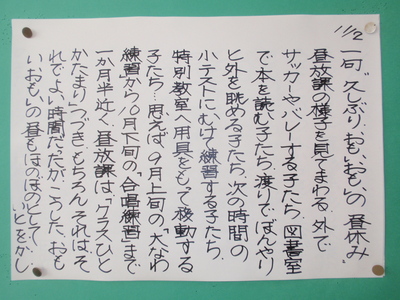 11/2
一句“久しぶり、おもいおもいの 昼休み”
昼放課の様子を見てまわる。外で
サッカーやバレーする子たち。図書室
で本を読む子たち。渡りで、ぼんやり
と外を眺める子たち。次の時間の
小テストにむけて練習する子たち。
特別教室へ用具をもって移動する
子たち…思えば、9月上旬の「大なわ
練習」から10月下旬の「合唱練習」まで
一か月半近く、昼放課は、「クラスひと
かたまり」つづき。もちろん、それは、そ
れでよい時間だったが、こうした、おも
いおもいの昼もほのぼのとして、
いとをかし